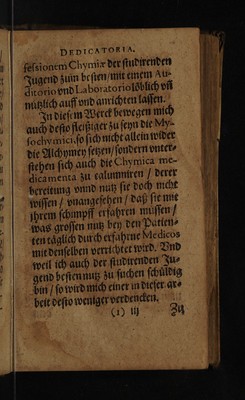 DEDICATORIA.
fessionem Chymiæ der studirenden
Jugend zum besten/mit einem Au-
ditorio vnd Laboratorio löblich vñ
nützlich auff vnd anrichten lassen.
In diesem Werck bewegen mich
auch desto fleissiger zu seyn die My-
sochymici, so sich nicht allein wider
die Alchymey setzen/sondern vnter-
stehen sich auch die Chymica me-
dicamenta zu calumniren / derer
bereitung vnnd nutz sie doch nicht
wissen / vnangesehen / daß sie mit
jhrem schimpff erfahren müssen /
was grossen nutz bey den Patien-
ten täglich durch erfahrne Medicos
mit denselben verrichtet wird. Vnd
weil ich auch der studirenden Ju-
gend besten nutz zu suchen schüldig
bin / so wird mich einer in dieser ar-
beit desto weniger verdencken.
(1) iij Zu